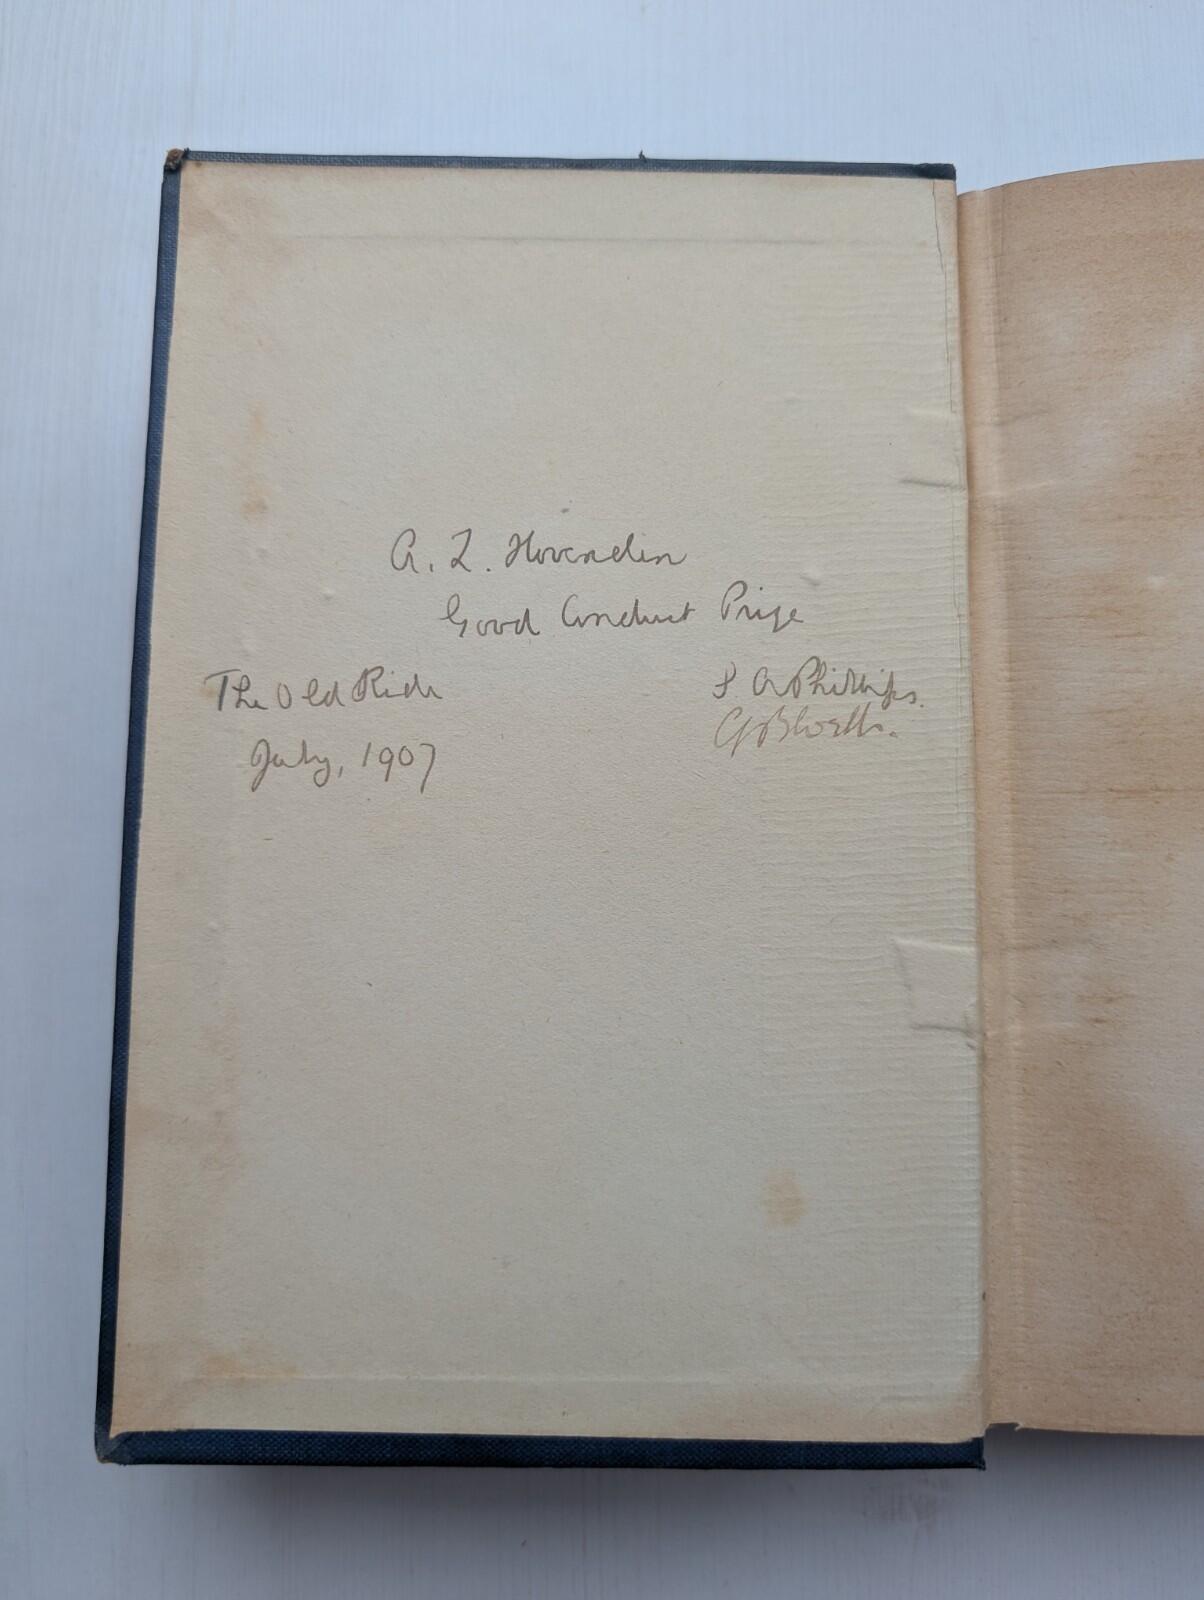 A. L. Hovenden
Good Conduct Prize
The Old Ride
July, 1907
S A Phillips.